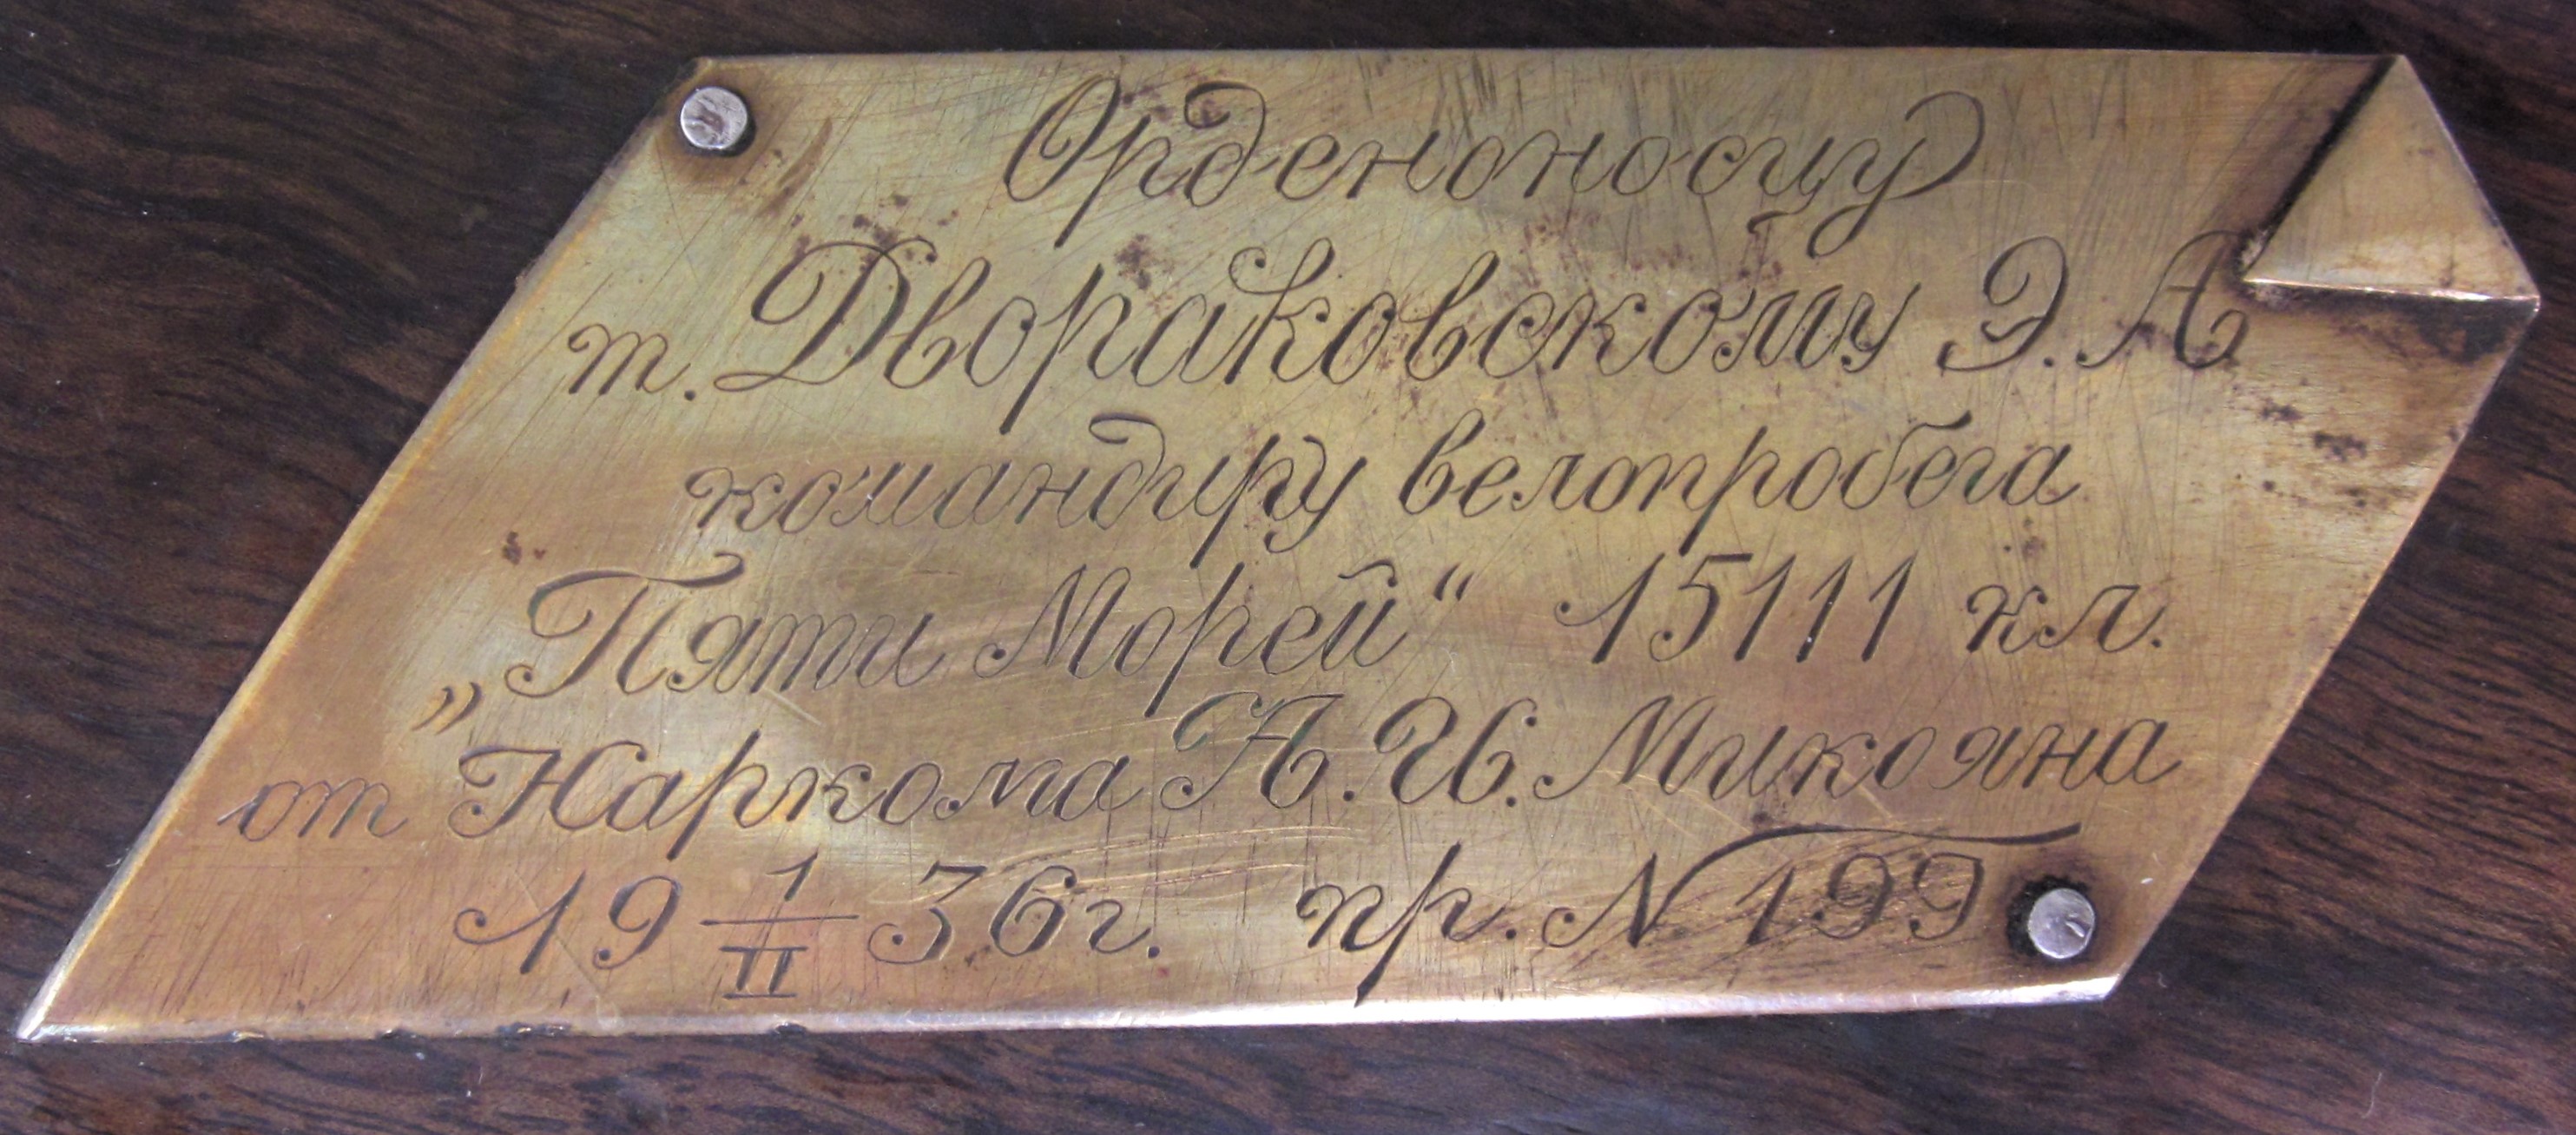 Орденоносцу
т. Двораковскому Э. А
командиру велопробега
„Пяти Морей“ 15111 кл.
от Наркома А. И. Микояна
19 1/II 36 г. пр. N 199